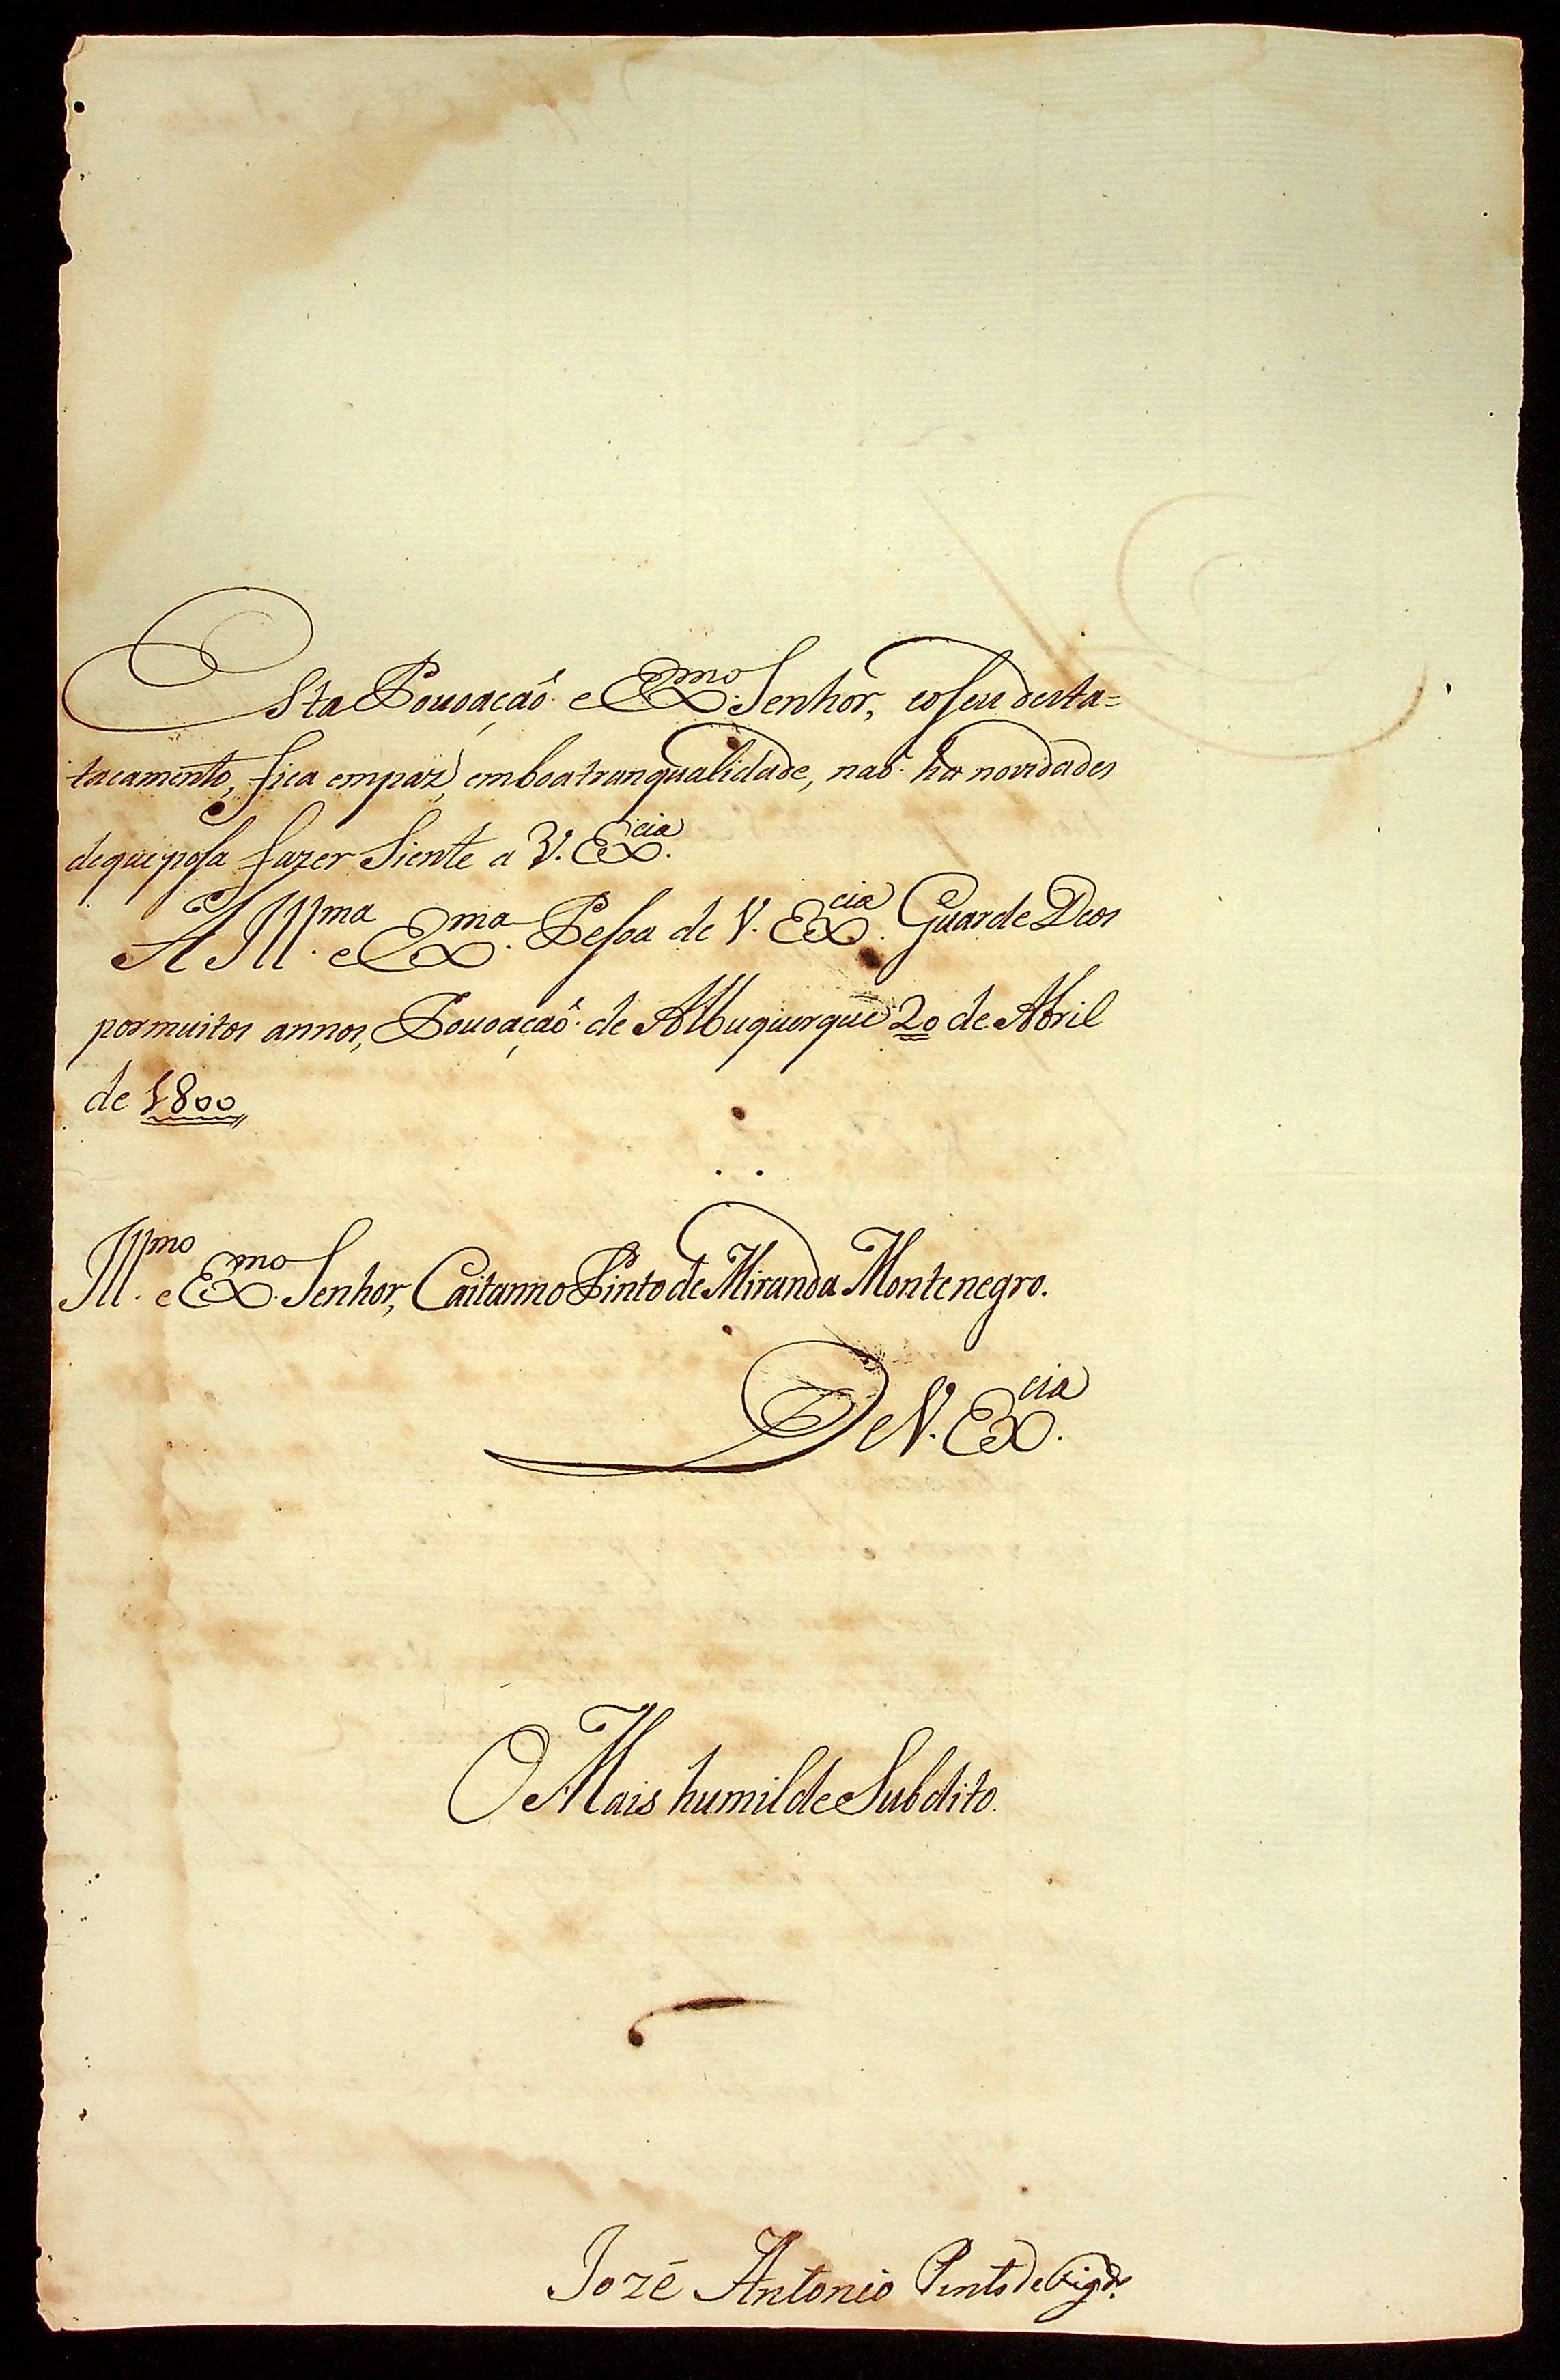 Esta Povoaçaõ e Ex.mo Senhor, eo seu desta=
tacamento, fica empaz, emboatranqualidade, naõ ha novidades
deque posa fazer Siente a V. Ex.cia
A Ill.ma e Ex.ma Pesoa de V. Ex.cia Guarde Deos
pormuitos annos, Povoaçaõ de Albuquerque 20 de Abril
de 1800
Ill.mo e Ex.mo Senhor, Caitanno Pinto de Miranda Montenegro.
De V. Ex.cia
O Mais humilde Subdito.
Jozé Antonio Pinto de